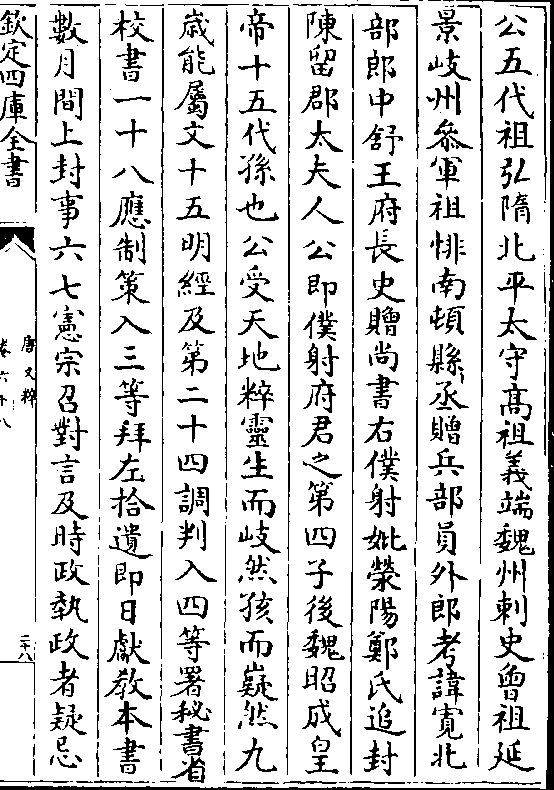 公五代祖弘隋北平太守髙祖義端魏州刺史曾祖延
景岐州叅軍祖悱南頓縣丞贈兵部員外郎考諱寛比
部郎中舒王府長史贈尚書右僕射妣滎陽鄭氏追封
陳留郡太夫人公即僕射府君之第四子後魏昭成皇
帝十五代孫也公受天地粹靈生而岐然孩而嶷然九
歳能屬文十五明經及第二十四調判入四等署秘書省
校書一十八應制策入三等拜左拾遺即日獻教本書
數月間上封事六七憲宗召對言及時政執政者疑忌
欽定四庫全書
唐文粹
卷六十八
二十八